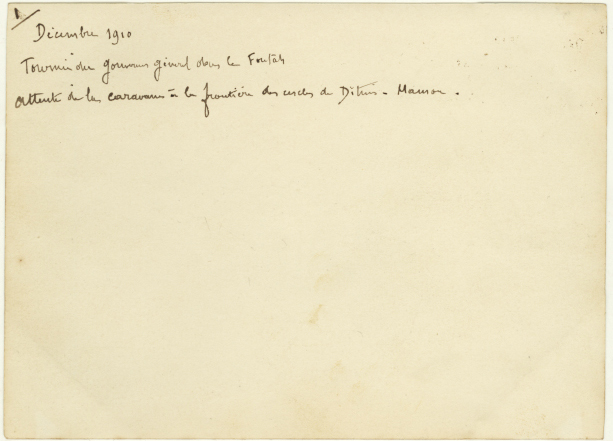 1
Décembre 1910
Tournée du gouverneur général dans le Fouta
Attente de la caravane à la frontière des cercles de Ditinn - Mamou.